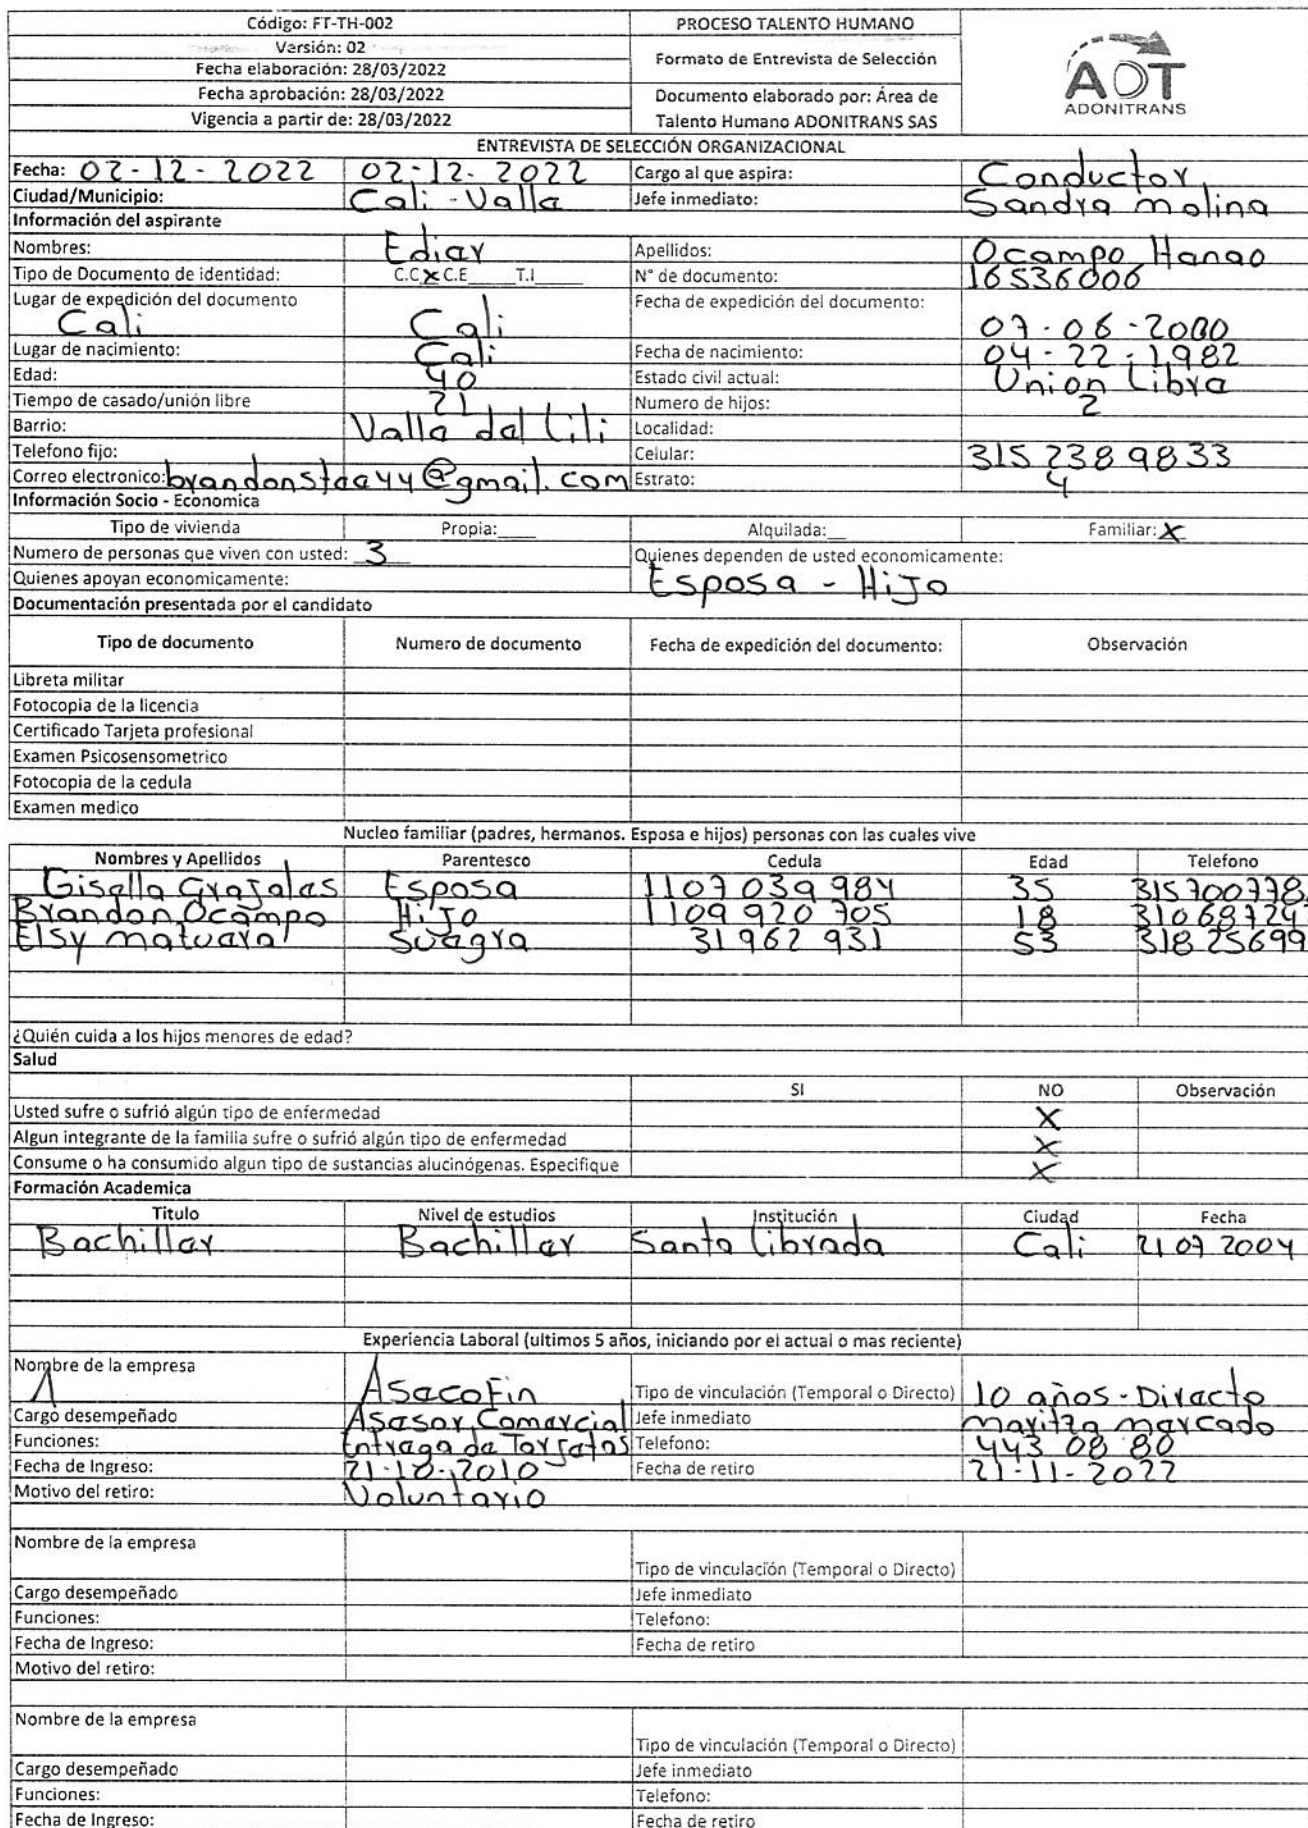 Código: FT-TH-002 PROCESO TALENTO HUMANO
Versión: 02
Fecha elaboración: 28/03/2022 Formato de Entrevista de Selección
Fecha aprobación: 28/03/2022 Documento elaborado por: Área de
Vigencia a partir de: 28/03/2022 Talento Humano ADONITRANS SAS
AOT
ADONITRANS
ENTREVISTA DE SELECCIÓN ORGANIZACIONAL
Fecha: 02-12-2022 02-12-2022 Cargo al que aspira: Conductor
Ciudad/Municipio: Cali - Valle Jefe inmediato: Sandra molina
Información del aspirante
Nombres: Edier Apellidos: Ocampo Henao
Tipo de Documento de identidad: C.C X C.E____ T.I____ N° de documento: 16536006
Lugar de expedición del documento Fecha de expedición del documento:
Cali Cali 07-06-2000
Lugar de nacimiento: Cali Fecha de nacimiento: 04-22-1982
Edad: 40 Estado civil actual: Union Libre
Tiempo de casado/unión libre 21 Numero de hijos: 2
Barrio: Valle del Lili Localidad:
Telefono fijo: Celular: 315 238 9833
Correo electronico: @gmail.com Estrato: 4
Información Socio - Economica
Tipo de vivienda Propia:____ Alquilada:__ Familiar: X
Numero de personas que viven con usted: 3 Quienes dependen de usted economicamente:
Quienes apoyan economicamente: Esposa - Hijo
Documentación presentada por el candidato
Tipo de documento Numero de documento Fecha de expedición del documento: Observación
Libreta militar
Fotocopia de la licencia
Certificado Tarjeta profesional
Examen Psicosensometrico
Fotocopia de la cedula
Examen medico
Nucleo familiar (padres, hermanos. Esposa e hijos) personas con las cuales vive
Nombres y Apellidos Parentesco Cedula Edad Telefono
Giselle Grajales Esposa 1107 039 984 35 315700778
Brandon Ocampo Hijo 1109 920 705 18 31068724
Elsy Suegra 31 962 931 53 318 25699
¿Quién cuida a los hijos menores de edad?
Salud
SI NO Observación
Usted sufre o sufrió algún tipo de enfermedad X
Algun integrante de la familia sufre o sufrió algún tipo de enfermedad X
Consume o ha consumido algun tipo de sustancias alucinógenas. Especifique X
Formación Academica
Titulo Nivel de estudios Institución Ciudad Fecha
Bachiller Bachiller Santa Librada Cali 21 07 2004
Experiencia Laboral (ultimos 5 años, iniciando por el actual o mas reciente)
Nombre de la empresa
A Asecofin Tipo de vinculación (Temporal o Directo) 10 años - Directo
Cargo desempeñado Asesor Comercial Jefe inmediato maritza mercado
Funciones: Entrega de Tarjetas Telefono: 443 08 80
Fecha de Ingreso: 21-10-2010 Fecha de retiro 21-11-2022
Motivo del retiro: Voluntario
Nombre de la empresa
Tipo de vinculación (Temporal o Directo)
Cargo desempeñado Jefe inmediato
Funciones: Telefono:
Fecha de Ingreso: Fecha de retiro
Motivo del retiro:
Nombre de la empresa
Tipo de vinculación (Temporal o Directo)
Cargo desempeñado Jefe inmediato
Funciones: Telefono:
Fecha de Ingreso: Fecha de retiro